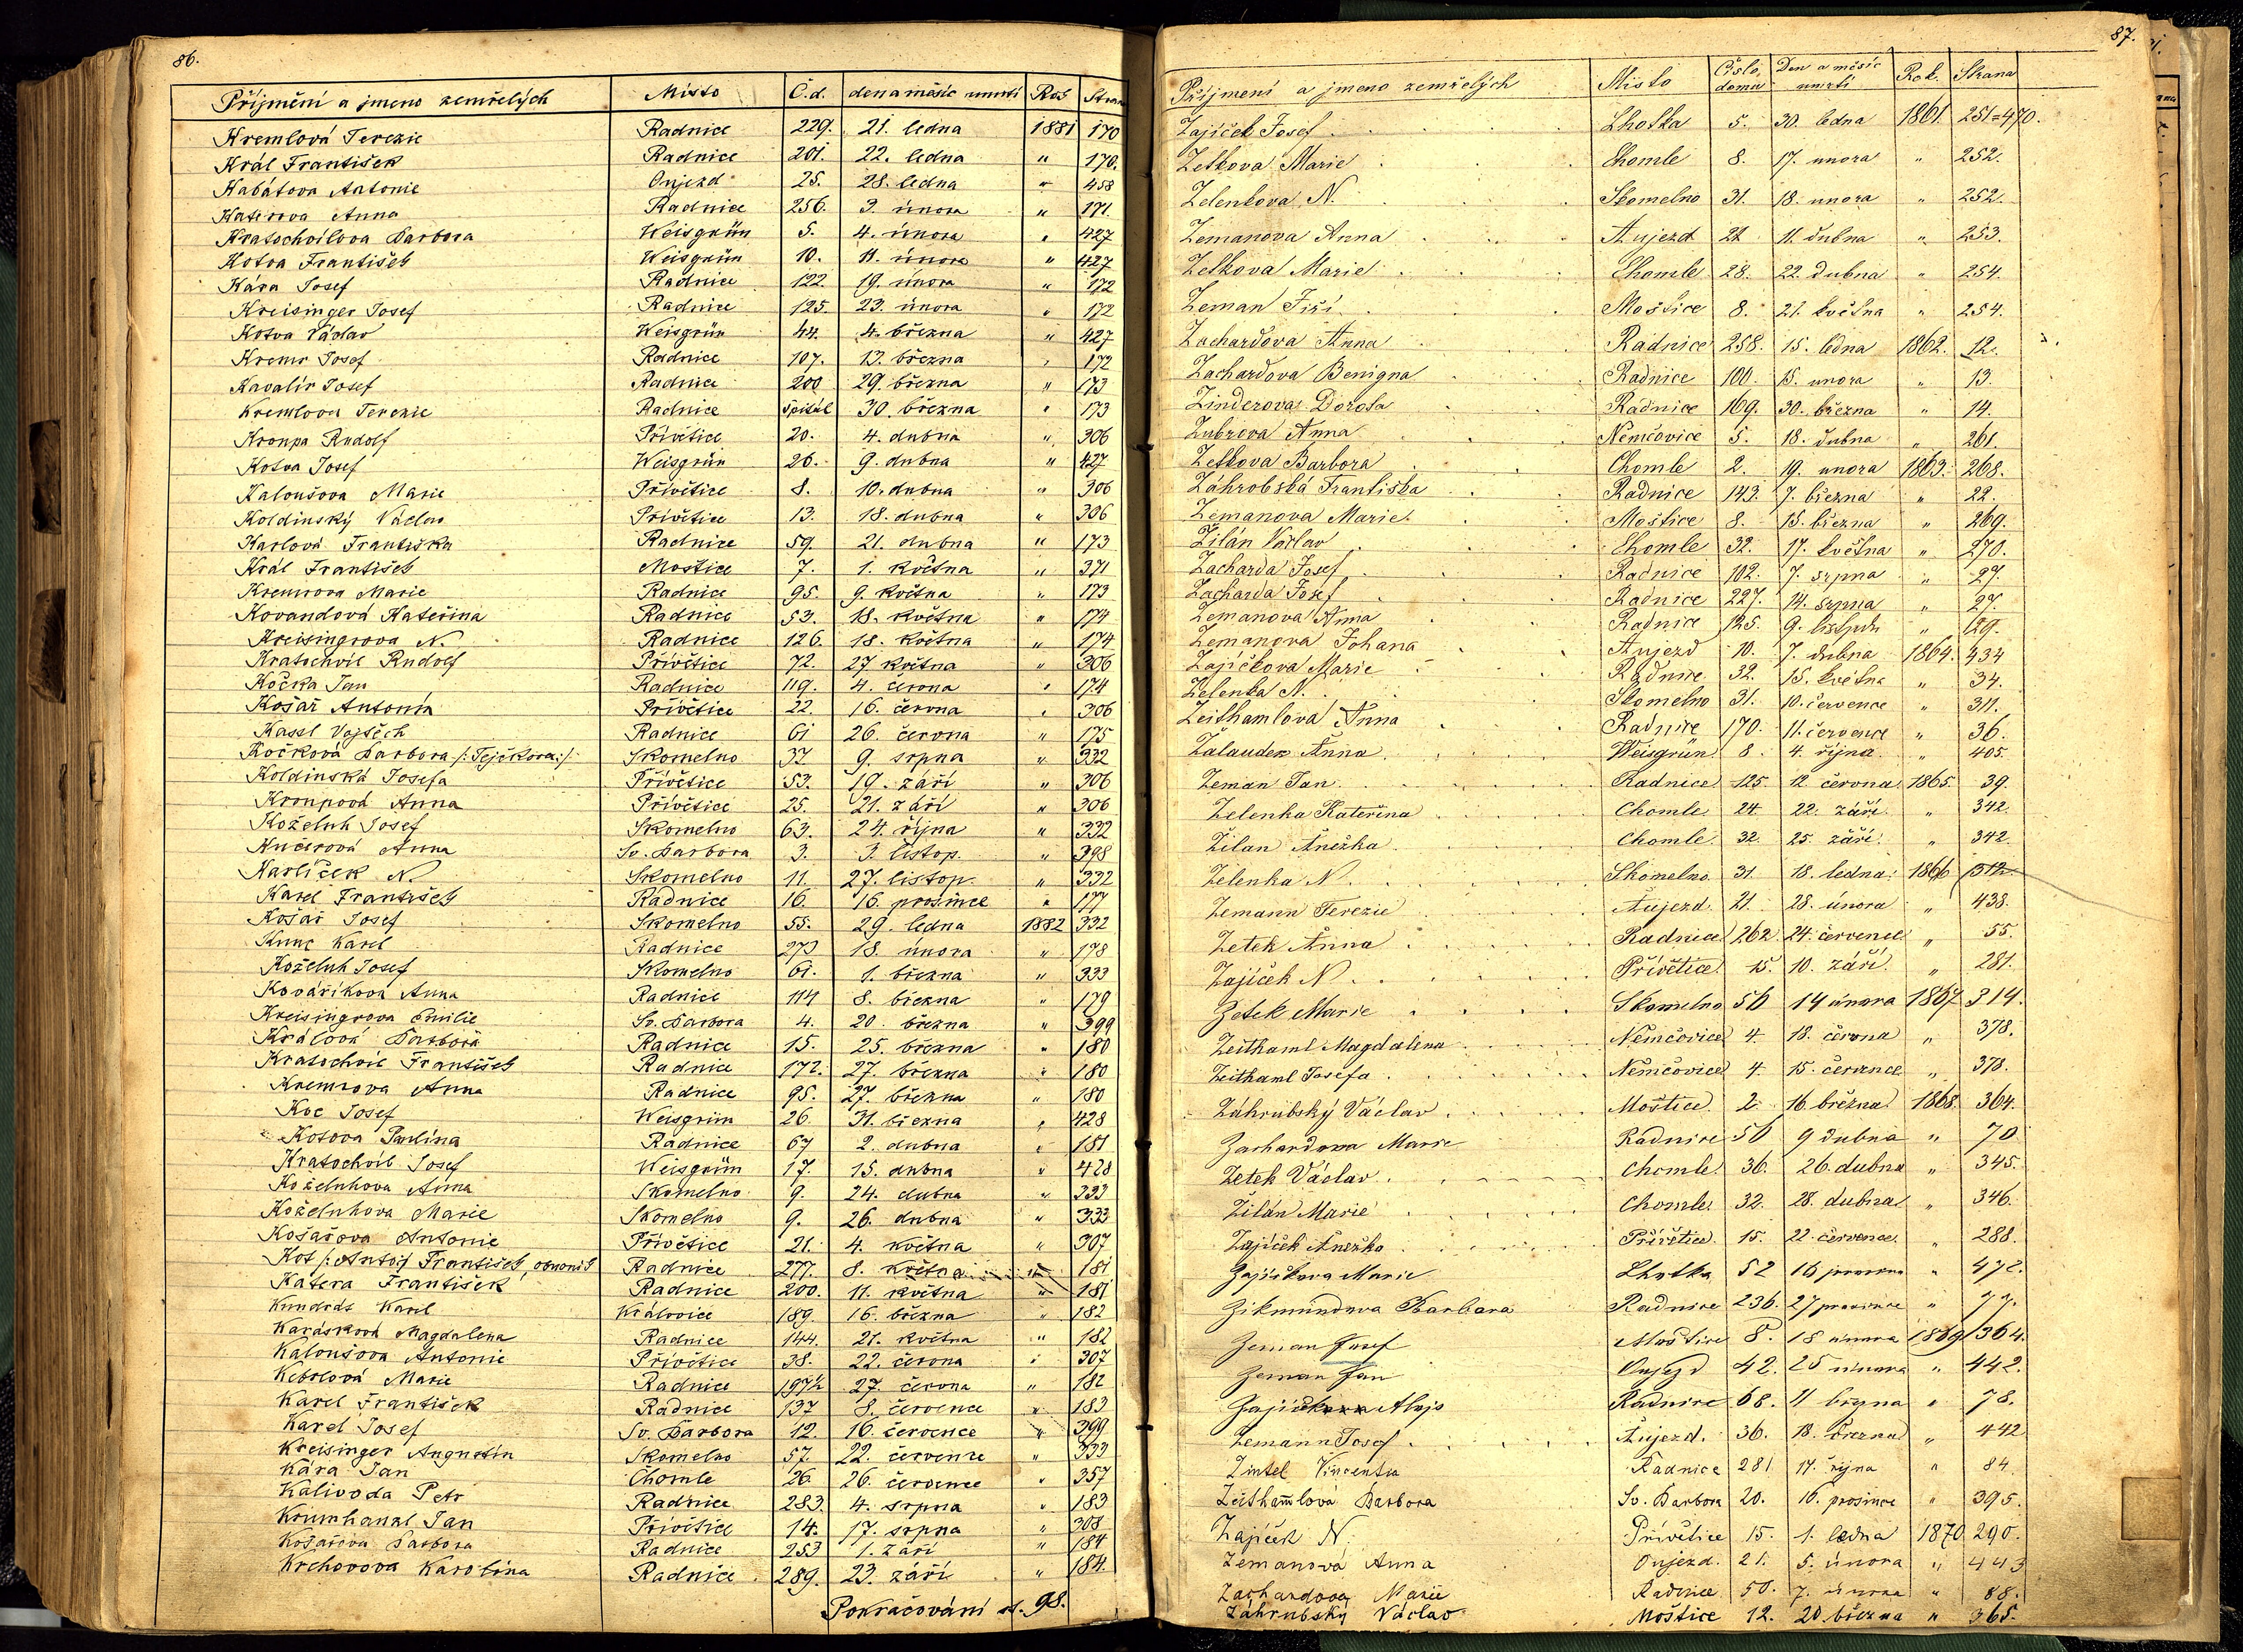 86.
Příjmění a jmeno zemřelých Místo Č.d. den a měsíc umrtí Rok Strana
Kremlová Terezie Radnice 229. 21. ledna 1881 170
Král František Radnice 201. 22. ledna " 170.
Kabátova Antonie Oujezd 25. 28. ledna " 458
Katerova Anna Radnice 256. 3. února " 171.
Kratochvílova Barbora Weisgrün 5. 4. února " 427
Kotva František Weisgrün 10. 11. února " 427
Kára Josef Radnice 122. 19. února " 172
Kreisinger Josef Radnice 125. 23. února " 172
Kotva Václav Weisgrün 44. 4. března " 427
Kremr Josef Radnice 107. 13. března " 172
Kavalír Josef Radnice 200 29. března " 173
Kremlova Terezie Radnice špitál 30. března " 173
Kroupa Rudolf Přívětice 20. 4. dubna " 306
Kotva Josef Weisgrün 26. 9. dubna " 427
Kaloušova Marie Přívětice 8. 10. dubna " 306
Koldinský Václav Přívětice 13. 18. dubna " 306
Karlová Františka Radnice 59. 21. dubna " 173
Král František Mostice 7. 1. května " 371
Kremrova Marie Radnice 95. 9. května " 173
Kovandová Kateřina Radnice 53. 18. května " 174
Kreisingrova N. Radnice 126. 18. května " 174
Kratochvíl Rudolf Přívětice 72. 27 května " 306
Kočka Jan Radnice 119. 4. června " 174
Košař Antonín Přívětice 22. 16. června " 306
Kassl Vojtěch Radnice 61 26. června " 175
Kočková Barbora /:Tejčkova:/ Skomelno 37 9. srpna " 332
Koldinská Josefa Přívětice 53. 19. září " 306
Kroupová Anna Přívětice 25. 21. září " 306
Koželuh Josef Skomelno 63. 24. října " 332
Kučerová Anna Sv. Barbora 3. 3. listop. " 398
Karlíček N. Skomelno 11. 27. listop. " 332
Karel František Radnice 16. 16. prosince " 177
Košař Josef Skomelno 55. 29. ledna 1882 332
Kunc Karel Radnice 273 18. února " 178
Koželuh Josef Skomelno 61. 1. března " 333
Kovaříková Anna Radnice 114 8. března " 179
Kreisingrova Emilie Sv. Barbora 4. 20. března " 399
Králová Barbora Radnice 15. 25. března " 180
Kratochvíl František Radnice 172. 27. března " 180
Kremrova Anna Radnice 95. 27. března " 180
Koc Josef Weisgrün 26 31. března " 428
Kotova Paulina Radnice 67 2. dubna " 181
Kratochvíl Josef Weisgrün 17. 15. dubna " 428
Koželuhova Anna Skomelno 9. 24. dubna " 333
Koželuhova Marie Skomelno 9. 26. dubna " 333
Košařova Antonie Přívětice 21. 4. května " 307
Kot /:Anto:/ František Radnice 277. 8. května " 181
Katera František Radnice 200. 11. května " 181
Kundrát Karel Královice 189. 16. března " 182
Karásková Magdalena Radnice 144. 21. května " 182
Kaloušova Antonie Přívětice 38. 22. června " 307
Kebrlová Marie Radnice 197½ 27. června " 182
Karel František Radnice 137 8. července " 183
Karel Josef Sv. Barbora 12. 16. července " 399
Kreisinger Augustin Skomelno 57. 22. července " 333
Kára Jan Chomle 26. 26. července " 357
Kalivoda Petr Radnice 283. 4. srpna " 183
Krumhanzl Jan Přívětice 14. 17. srpna " 308
Košařova Barbora Radnice 253 1. září " 184
Krchovova Karolina Radnice. 289. 23. září " 184.
Pokračování st. 98.
87.
Příjmení a jmeno zemřelých Místo Číslo domu Den a měsíc umrtí Rok. Strana
Zajíček Josef Lhotka 5. 30. ledna 1861. 251=470.
Zetkova Marie Chomle 8. 17. unora " 252.
Zelenkova N. Skomelno 31. 18. unora " 252.
Zemanova Anna Aujezd 21 11. dubna " 253.
Zetkova Marie Chomle 28. 22. dubna " 254.
Zeman Jiří Moštice 8. 21. května " 254.
Zachardova Anna Radnice 258. 15. ledna 1862. 12.
Zachardova Benigna Radnice 100. 15. unora " 13.
Zinderova Dorota Radnice 169. 30. března " 14.
Zubrova Anna Nemčovice 5. 18. dubna " 261.
Zetkova Barbora Chomle 2. 19. unora 1863. 268.
Záhrobská Františka Radnice 143. 7. března " 22.
Zemanova Marie Moštice 8. 15. března " 269.
Žilán Václav Chomle 32. 17. května " 270.
Zacharda Josef Radnice 102. 7. srpna " 27.
Zacharda Josef Radnice 227. 14. srpna " 27.
Zemanova Anna Radnice 125. 9. listpdu " 29.
Zemanova Johana Aujezd 10. 7. dubna 1864. 434
Zajíčkova Marie Radnice 32. 15. května " 34.
Zelenka N. Skomelno 31. 10. července " 311.
Zeithamlova Anna Radnice 170. 11. července " 36.
Žalauder Anna Weisgrün 8. 4. října " 405.
Zeman Jan Radnice 125. 12. června 1865. 39.
Zelenka Kateřina Chomle 24. 22. září " 342.
Žilan Anežka Chomle 32. 25. září " 342.
Zelenka N Skomelno. 31. 18. ledna 1866 312
Zemann Terezie Aujezd. 21. 28. února " 438.
Zetek Anna Radnice 262 24. července " 55.
Zajíček N Přívětice 15. 10. září " 281.
Zetek Marie Skomelno 56 14 února 1867 314.
Zeithaml Magdalena Němčovice 4. 18. června " 378.
Zeithaml Josefa Němčovice 4. 15. července " 378.
Záhrubský Václav Moštice 2 16. března 1868. 364.
Zachardova Marie Radnice 56 9 dubna " 70
Zetek Václav Chomle 36. 26. dubna " 345.
Žilán Marie Chomle 32. 28. dubna " 346.
Zajíček Anežka Přívětice 15. 22. července " 288.
Zajíčkova Marie Lhotka 52 16 " 472.
Zikmundova Barbara Radnice 236. 27 prosince " 77.
Zeman Josef Moštice 8. 18 února 1869 364.
Zeman Jan Oujezd 42. 25 února " 442.
Zajíček Alojs Radnice 68. 11 března " 78.
Zemann Josef Aujezd. 36. 18. března " 442
Zintel Vincentia Radnice 281 17. října " 84
Zeithamlová Barbora Sv. Barbora 20. 16. prosince " 395.
Zajíček N. Přívětice 15. 1. ledna 1870 290.
Zemanová Anna Oujezd. 21. 5. února " 443
Zachardova Marie Radnice 50. 7. února " 88.
Záhrubský Václav Moštice 12. 20. března " 365.